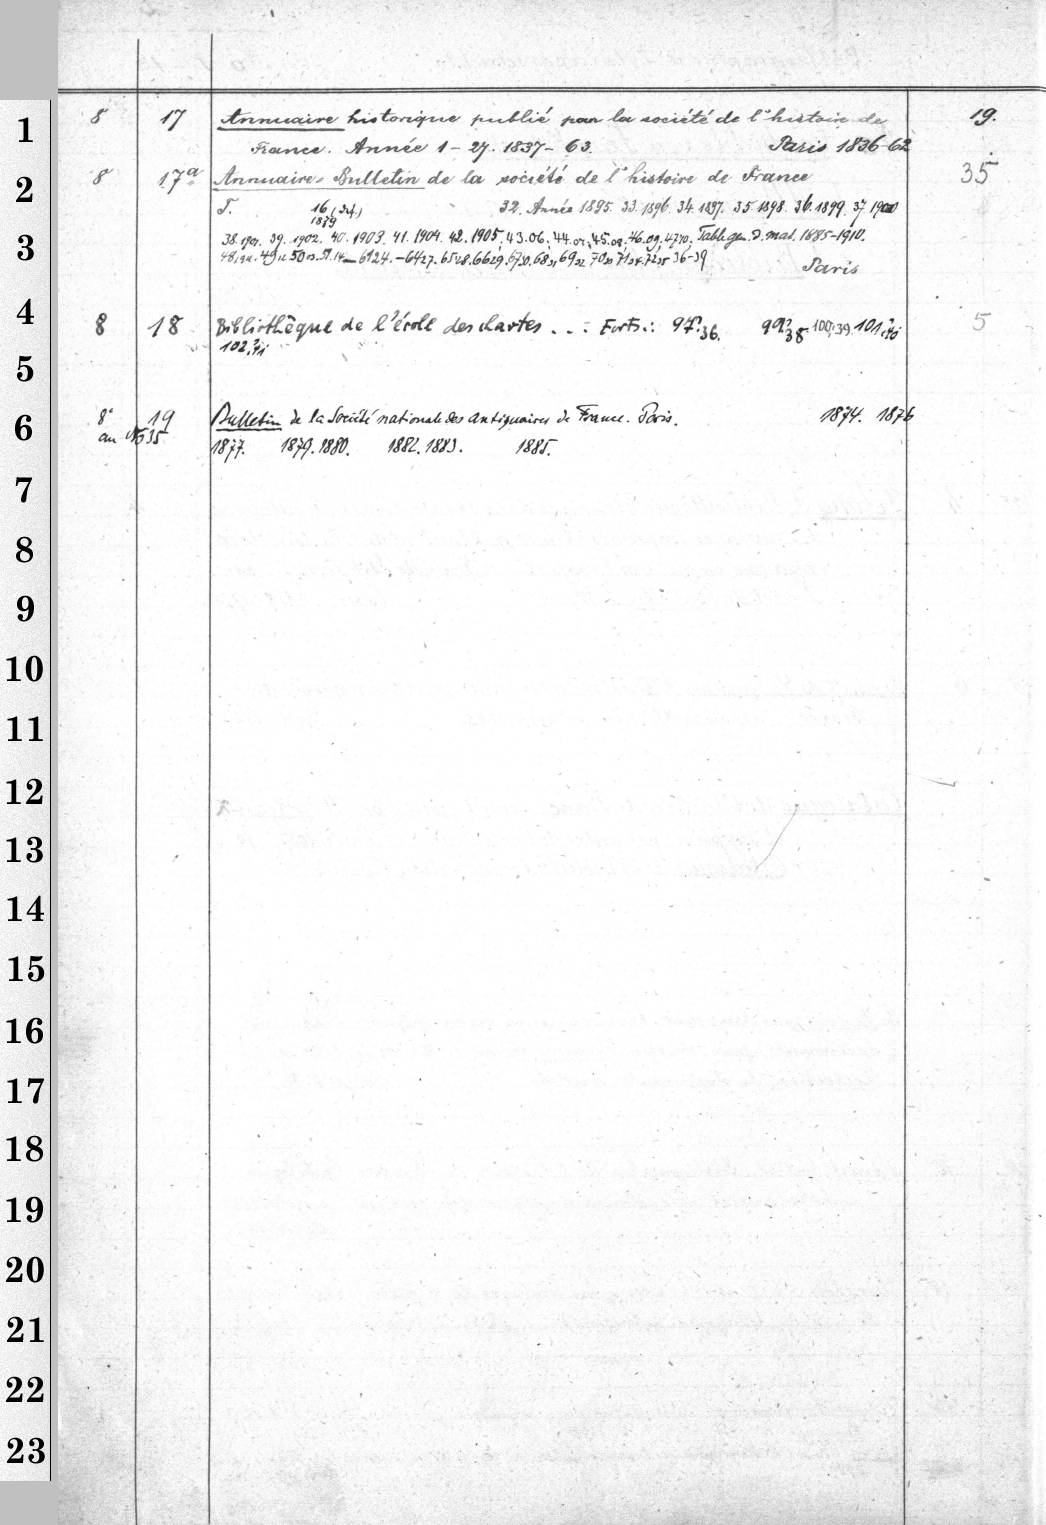 1 8 17 Annuaire historique publié par la société de l'histoire de 19.
France. Année 1-27. 1837-63. Paris 1836-62
2 8 17a Annuaire-Bulletin de la société de l'histoire de France 35
T. 16 1879 32. Année 1895. 33. 1896. 34. 1897. 35. 1898. 36. 1899. 37 1900
3 38. 1901. 39. 1902. 40. 1903. 41. 1904. 42. 1905, 43.06, 44.07, 45.08, 46.09, 47.10, Table gen. d. mat. 1885-1910.
48,1911. 49,12. 50,13. 51.14 Paris
4 8 18 Bibliothèque de l'école des chartes . . . Forts.: 97,36. 99,38. 100,39. 101,40 5
102,41
5
6 8° 19 Bulletin de la Société nationale des antiquaires de France. Paris. 1874. 1876
an No 35 1877. 1879. 1880. 1882. 1883. 1885.
7
8
9
10
11
12
13
14
15
16
17
18
19
20
21
22
23